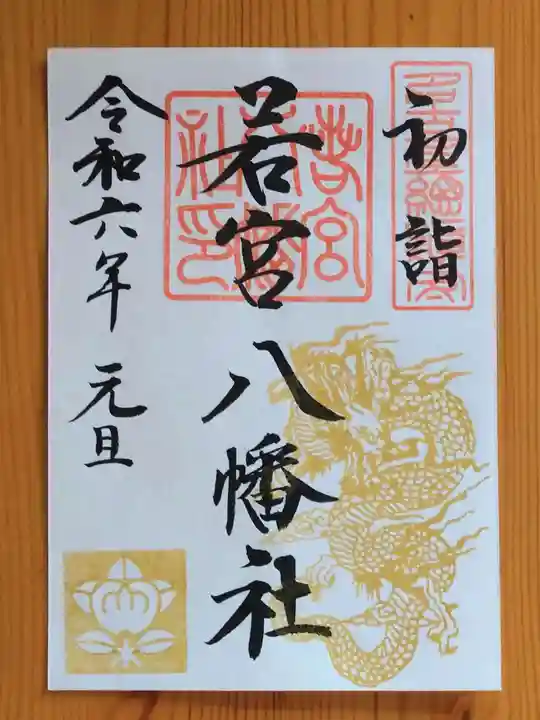 初詣
若宮八幡社
令和六年 元旦
若宮
八幡
社印